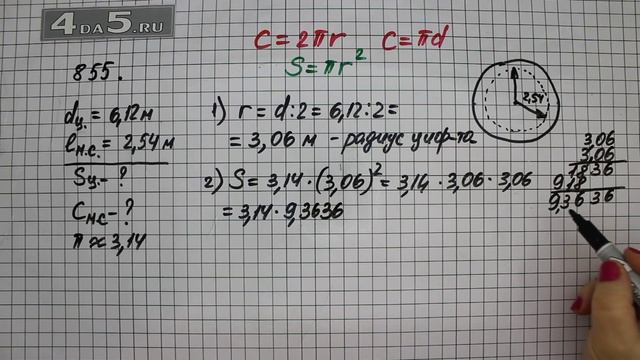 4DA5.RU
C = 2πr   C = πd
S = πr²
855.
dц. = 6,12 м
lм.с. = 2,54 м
Sц. - ?
Cмс - ?
π ≈ 3,14
1) r = d : 2 = 6,12 : 2 =
= 3,06 м - радиус циф-та
2) S = 3,14 · (3,06)² = 3,14 · 3,06 · 3,06
= 3,14 · 9,3636
2,54
3,06
3,06
1836
918
9,3636